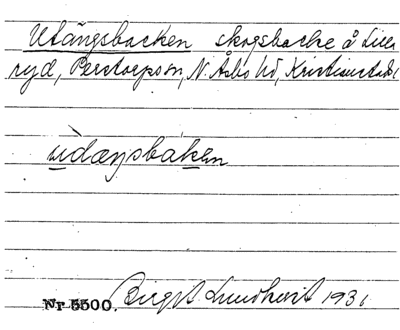 Utängsbacken skogsbacke å Lilla
ryd, Perstorpssn, N. Åsbo hd, Kristianstads l
ùdæŋsbaken
Nr 5500. Birgit Lundkvist 1931